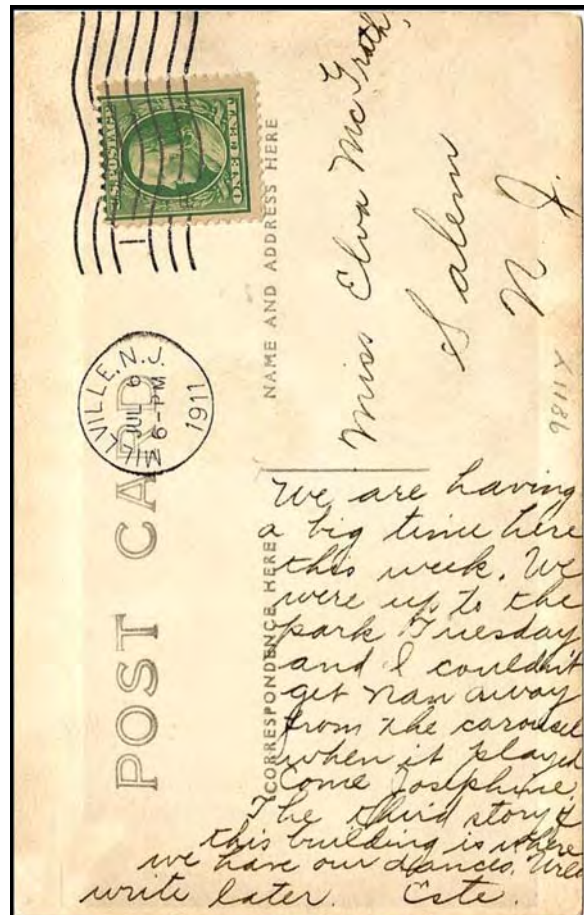 POST CARD
MILLVILLE, N.J.
JUL 6
6-PM
1911
U.S. POSTAGE
ONE CENT
NAME AND ADDRESS HERE
Miss Elva McGrath,
Salem
N. J.
X1186
CORRESPONDENCE HERE
We are having
a big time here
this week. We
were up to the
park Tuesday
and I couldn't
get Nan away
from the carousel
when it played
Come Josephine.
The third story of
this building is where
we have our dances. Will
write later. Este.